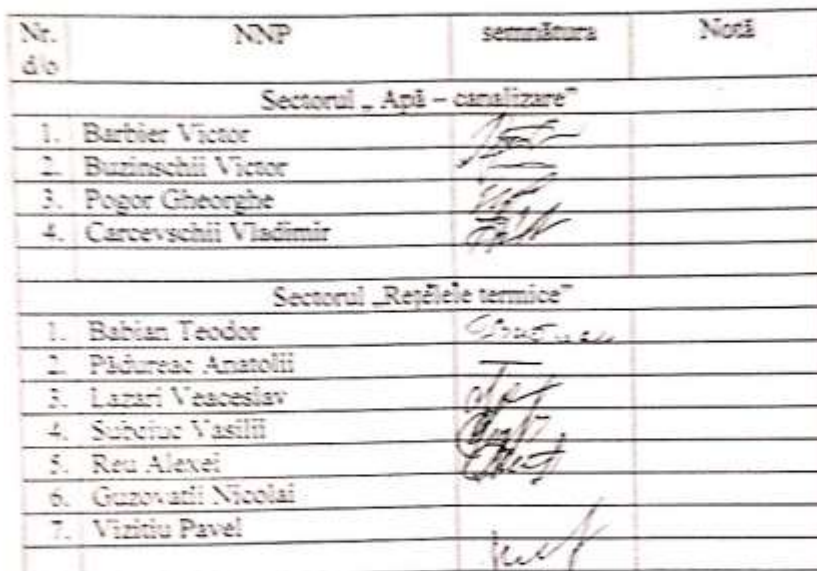 Nr. d/o NNP semnătura Notă
Sectorul „ Apă – canalizare”
1. Barbier Victor
2. Buzinschii Victor
3. Pogor Gheorghe
4. Carcevschii Vladimir
Sectorul „Rețelele termice”
1. Babian Teodor
2. Pădureac Anatolii
3. Lazari Veaceslav
4. Subciuc Vasilii
5. Reu Alexei
6. Guzovatii Nicolai
7. Vizitiu Pavel